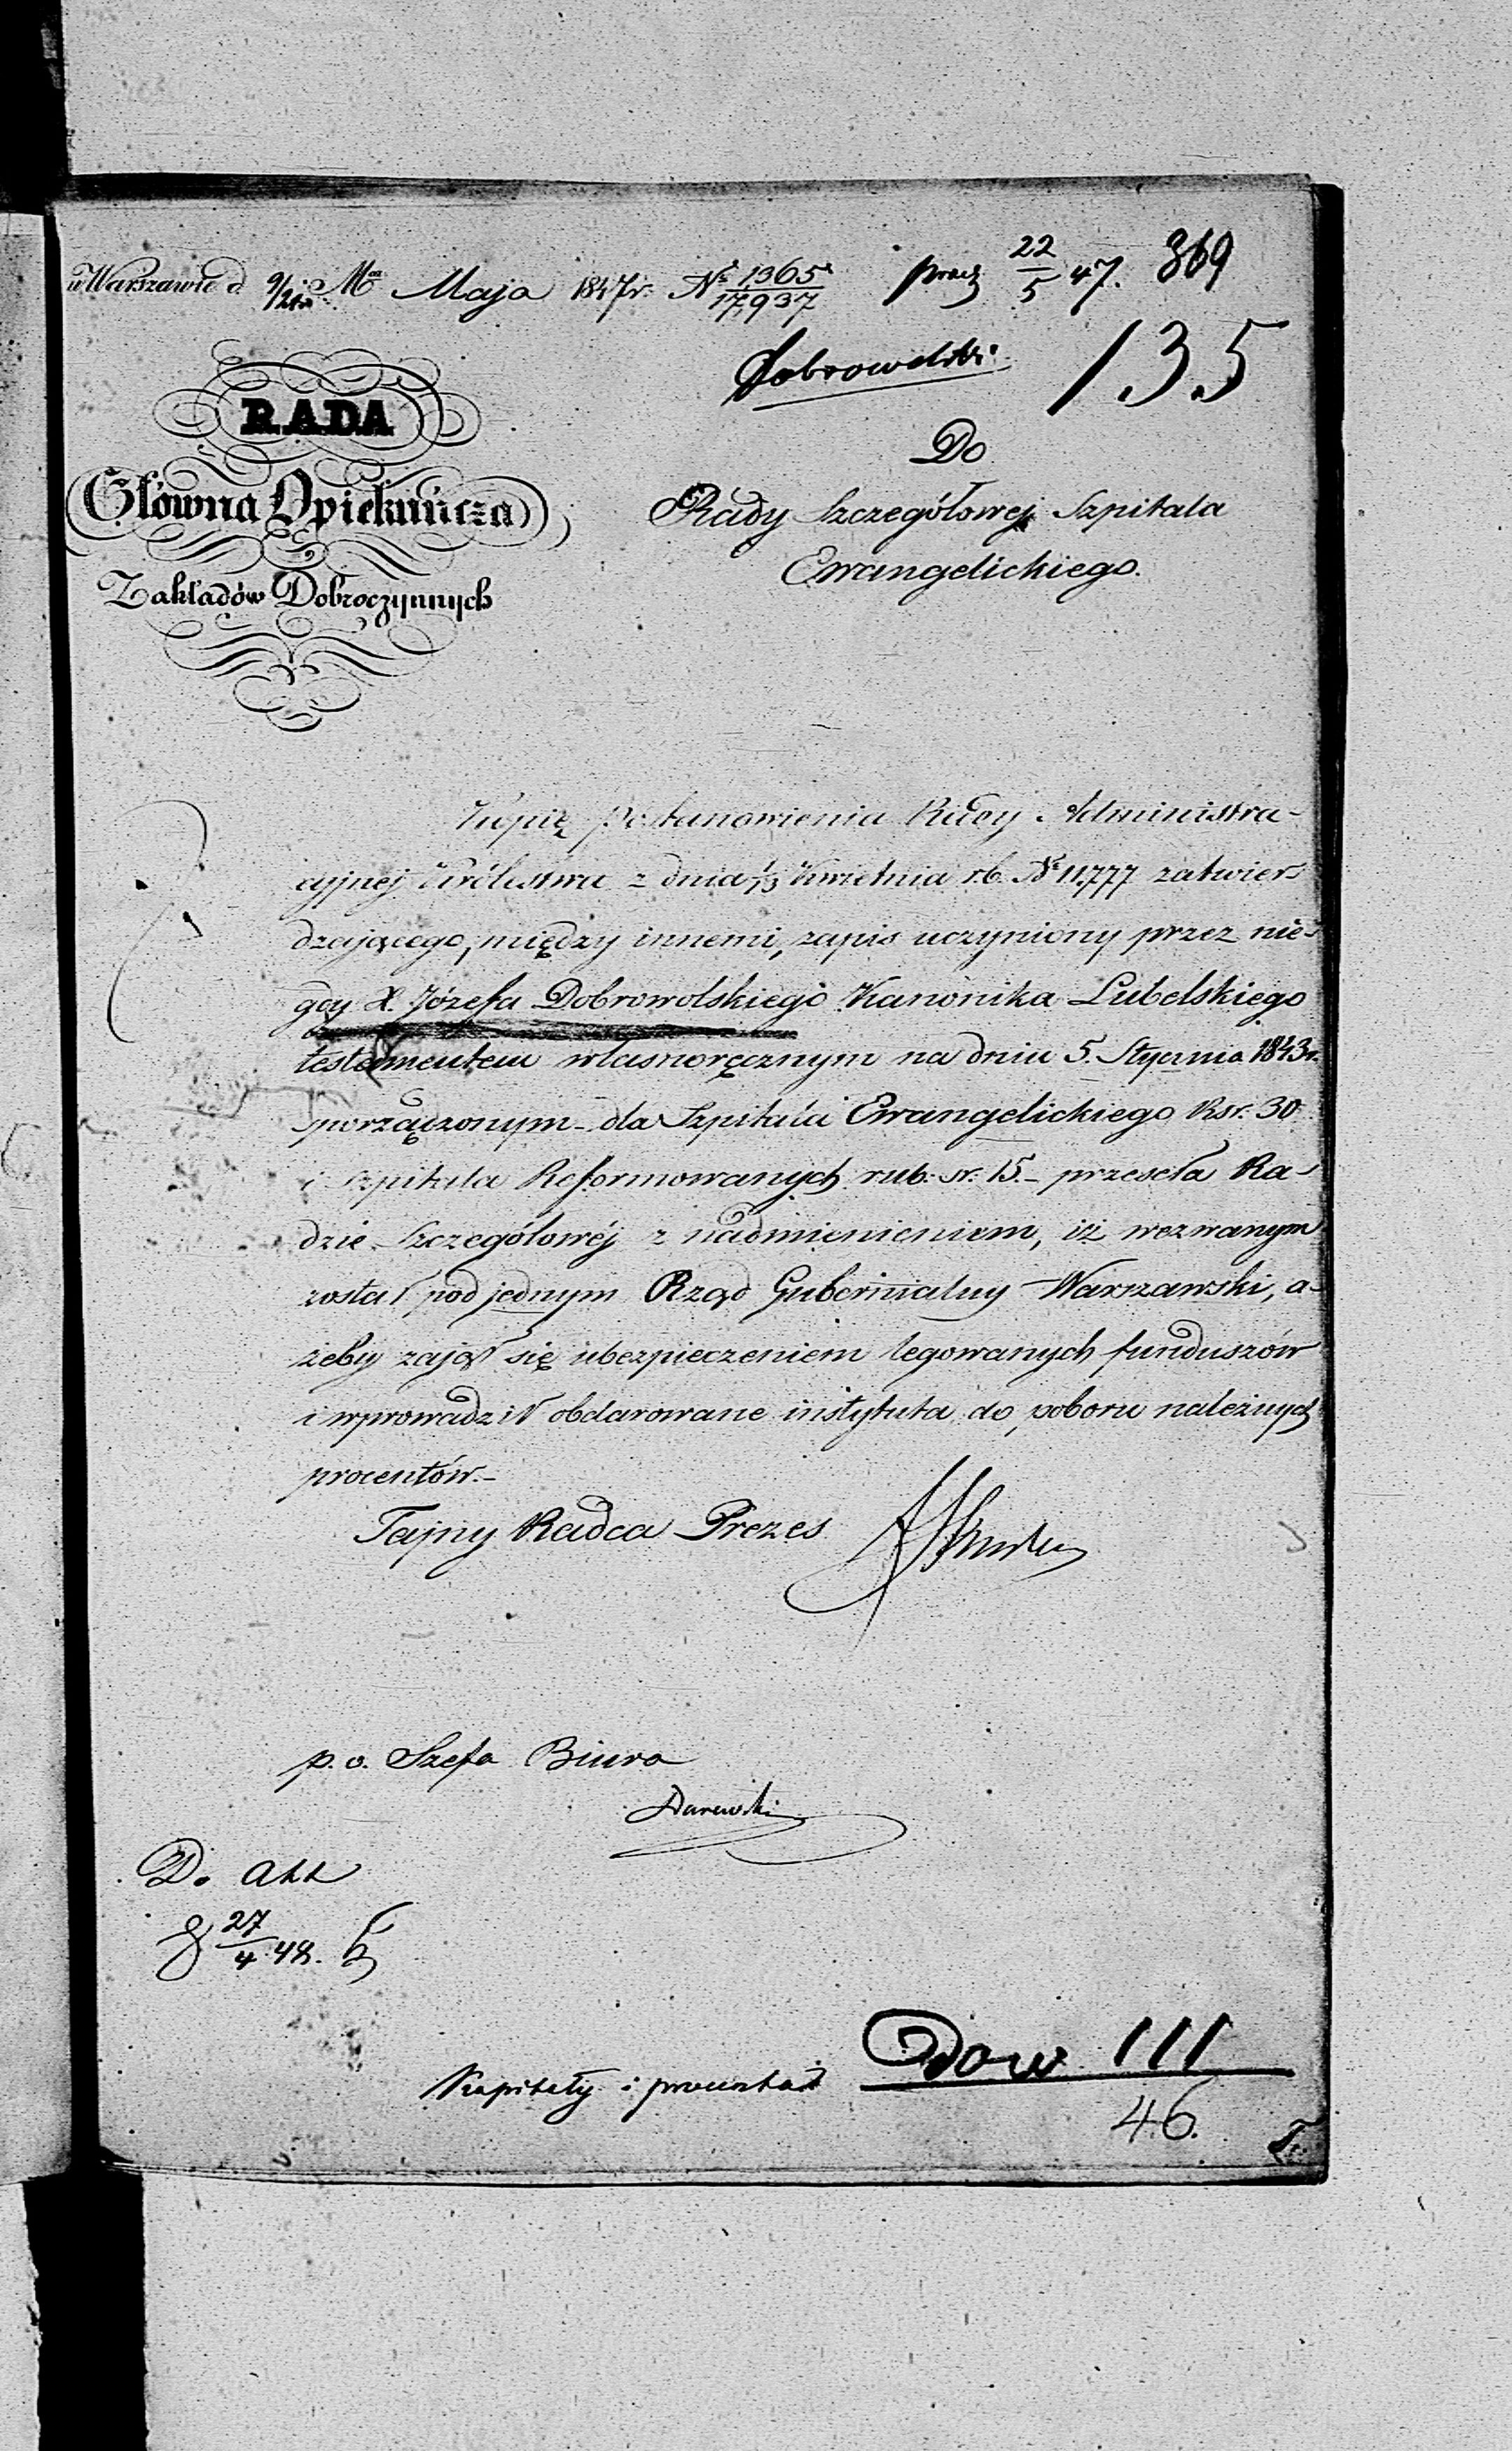 w Warszawie d. 9/21go Mca Maja 1847 r. Nr 1365/17,937
22/5 47. 369
Dobrowolski 135
RADA
Główna Opiekuńcza
Zakładów Dobroczynnych
Do
Rady Szczegółowej Szpitala
Ewangelickiego.
Kopię Postanowienia Rady Administra-
cyjnej Królestwa z dnia 1/13 Kwietnia r.b. Nr 11,777 zatwier-
dzającego, między innemi, zapis uczyniony przez nie-
gdy X. Józefa Dobrowolskiego Kanonika Lubelskiego
testamentem własnoręcznym na dniu 5. Stycznia 1843 r.
sporządzonym - dla Szpitala Ewangelickiego Rsr. 30
i Szpitala Reformowanych rub. sr. 15. - przeseła Ra-
dzie Szczegółowéj z nadmienieniem, iż wezwanym
został pod jednym Rząd Gubernialny Warszawski, a-
żeby zajął się ubezpieczeniem legowanych funduszów
i wprowadził obdarowane instytuta do poboru należnych
procentów. -
Tajny Radca Prezes
p. o. Szefa Biura
Do akt
27/4 48.
Kapitały i procenta
Dow III
46.